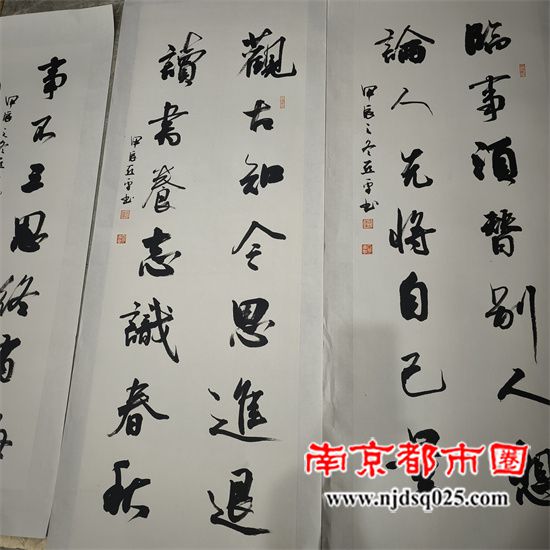 臨事須替別人想
論人先將自己量
甲辰之冬亚平书
觀古知今思進退
讀書養志識春秋
甲辰亚平书
事不三思终有悔
甲辰之冬亚
南京都市圈
www.njdsq025.com